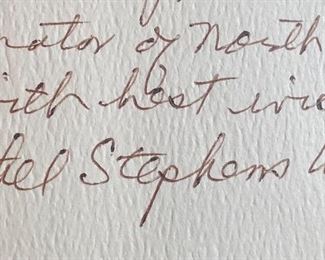 nator of North
with best wi
el Stephens